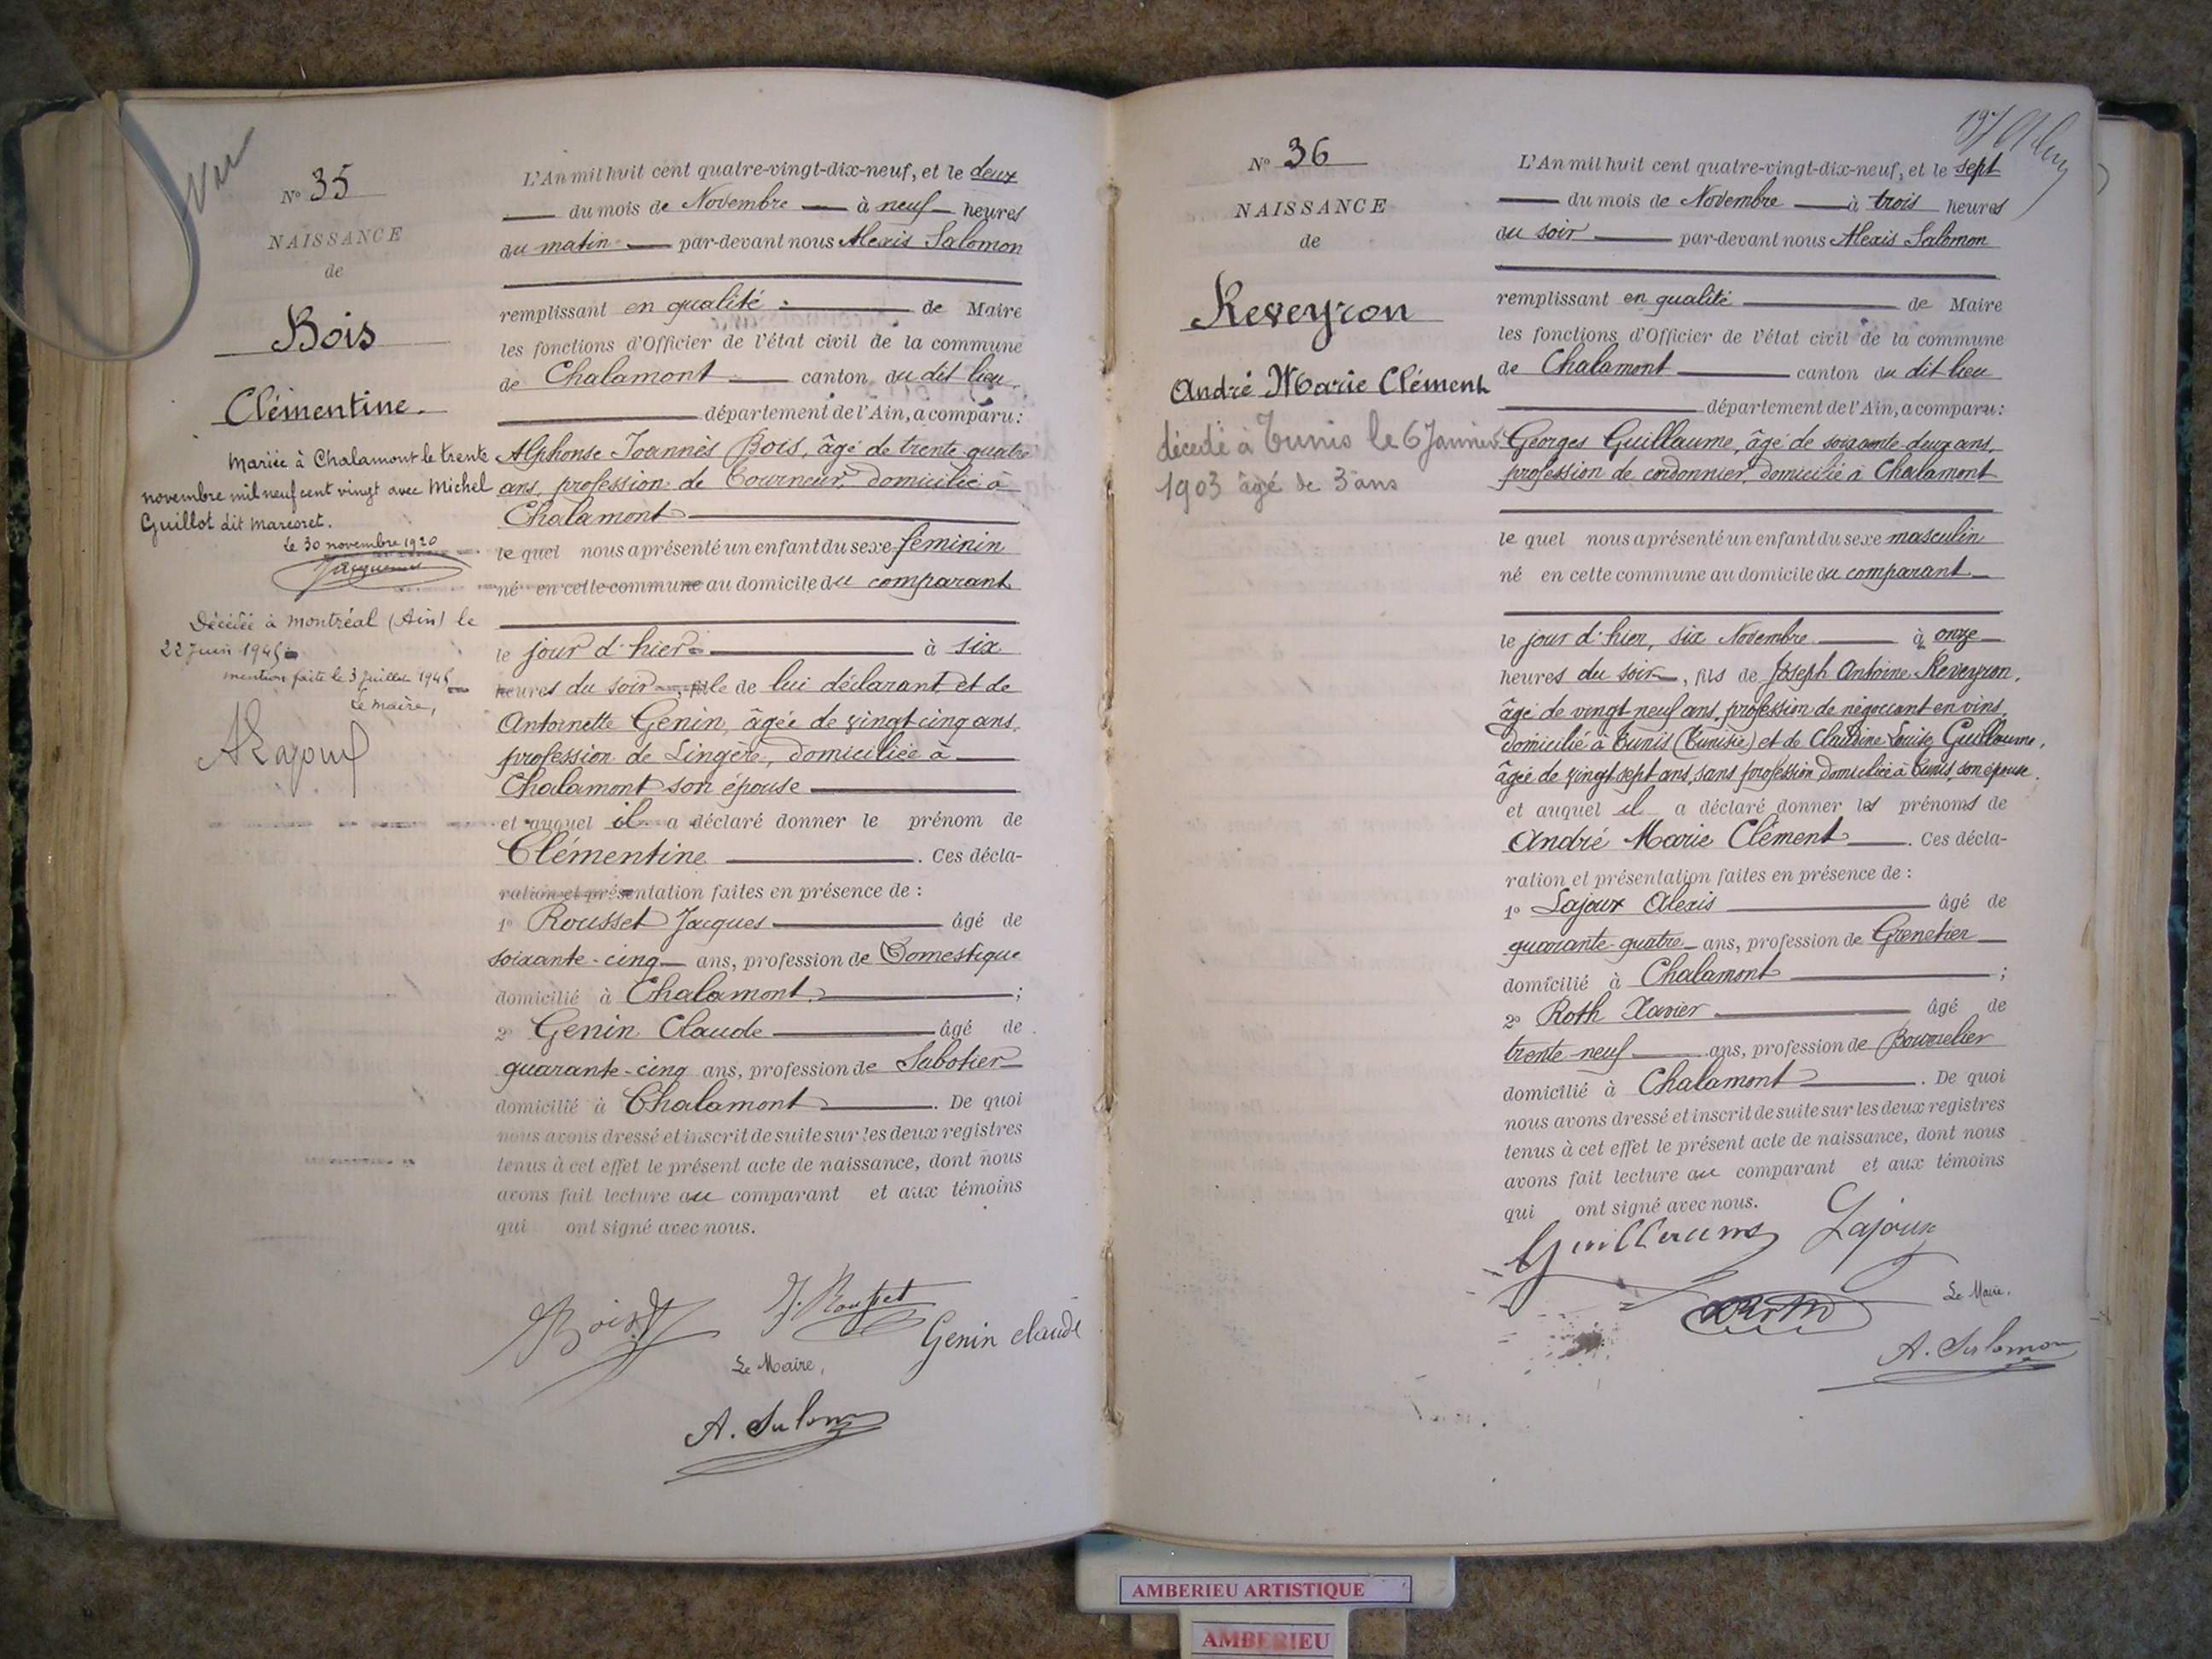 Vu
N° 35
NAISSANCE
de
Bois
Clémentine.
Mariée à Chalamont le trente
novembre mil neuf cent vingt avec Michel
Guillot dit Marcoret.
Le 30 novembre 1920
Décédée à Montréal (Ain) le
22 Juin 1945
mention faite le 3 Juillet 1945
Le maire,
L'An mil huit cent quatre-vingt-dix-neuf, et le deux
du mois de Novembre à neuf heures
du matin par-devant nous Alexis Salomon
remplissant en qualité de Maire
les fonctions d'Officier de l'état civil de la commune
de Chalamont canton du dit lieu
département de l'Ain, a comparu:
Alphonse Joannès Bois, âgé de trente-quatre
ans, profession de Tourneur, domicilié à
Chalamont
le quel nous a présenté un enfant du sexe féminin
né en cette commune au domicile du comparant
le jour d'hier à six
heures du soir, fille de lui déclarant et de
Antoinette Genin, âgée de vingt cinq ans,
profession de Lingère, domiciliée à
Chalamont son épouse
et auquel il a déclaré donner le prénom de
Clémentine. Ces décla-
ration et présentation faites en présence de :
1° Rousset Jacques âgé de
soixante-cinq ans, profession de Domestique
domicilié à Chalamont ;
2° Genin Claude âgé de
quarante-cinq ans, profession de Sabotier
domicilié à Chalamont. De quoi
nous avons dressé et inscrit de suite sur les deux registres
tenus à cet effet le présent acte de naissance, dont nous
avons fait lecture au comparant et aux témoins
qui ont signé avec nous.
Bois J. Rousset
Genin claude
Le Maire,
A. Salomon
N° 36
NAISSANCE
de
Reveyron
André Marie Clément
décédé à Tunis le 6 Janvier
1903 âgé de 3 ans
L'An mil huit cent quatre-vingt-dix-neuf, et le sept
du mois de Novembre à trois heures
du soir par-devant nous Alexis Salomon
remplissant en qualité de Maire
les fonctions d'Officier de l'état civil de la commune
de Chalamont canton du dit lieu
département de l'Ain, a comparu:
Georges Guillaume, âgé de soixante-deux ans,
profession de cordonnier, domicilié à Chalamont
le quel nous a présenté un enfant du sexe masculin
né en cette commune au domicile du comparant
le jour d'hier, six Novembre à onze
heures du soir, fils de Joseph Antoine Reveyron,
âgé de vingt neuf ans, profession de négociant en vins,
domicilié à Tunis (Tunisie) et de Claudine Louise Guillaume,
âgée de vingt sept ans, sans profession domiciliée à Tunis, son épouse.
et auquel il a déclaré donner les prénoms de
André Marie Clément. Ces décla-
ration et présentation faites en présence de :
1° Lajoux Alexis âgé de
quarante-quatre ans, profession de Grenetier
domicilié à Chalamont ;
2° Roth Xavier âgé de
trente neuf ans, profession de Bourrelier
domicilié à Chalamont. De quoi
nous avons dressé et inscrit de suite sur les deux registres
tenus à cet effet le présent acte de naissance, dont nous
avons fait lecture au comparant et aux témoins
qui ont signé avec nous.
Guillaume Lajoux
Le Maire.
A. Salomon
AMBERIEU ARTISTIQUE
AMBERIEU